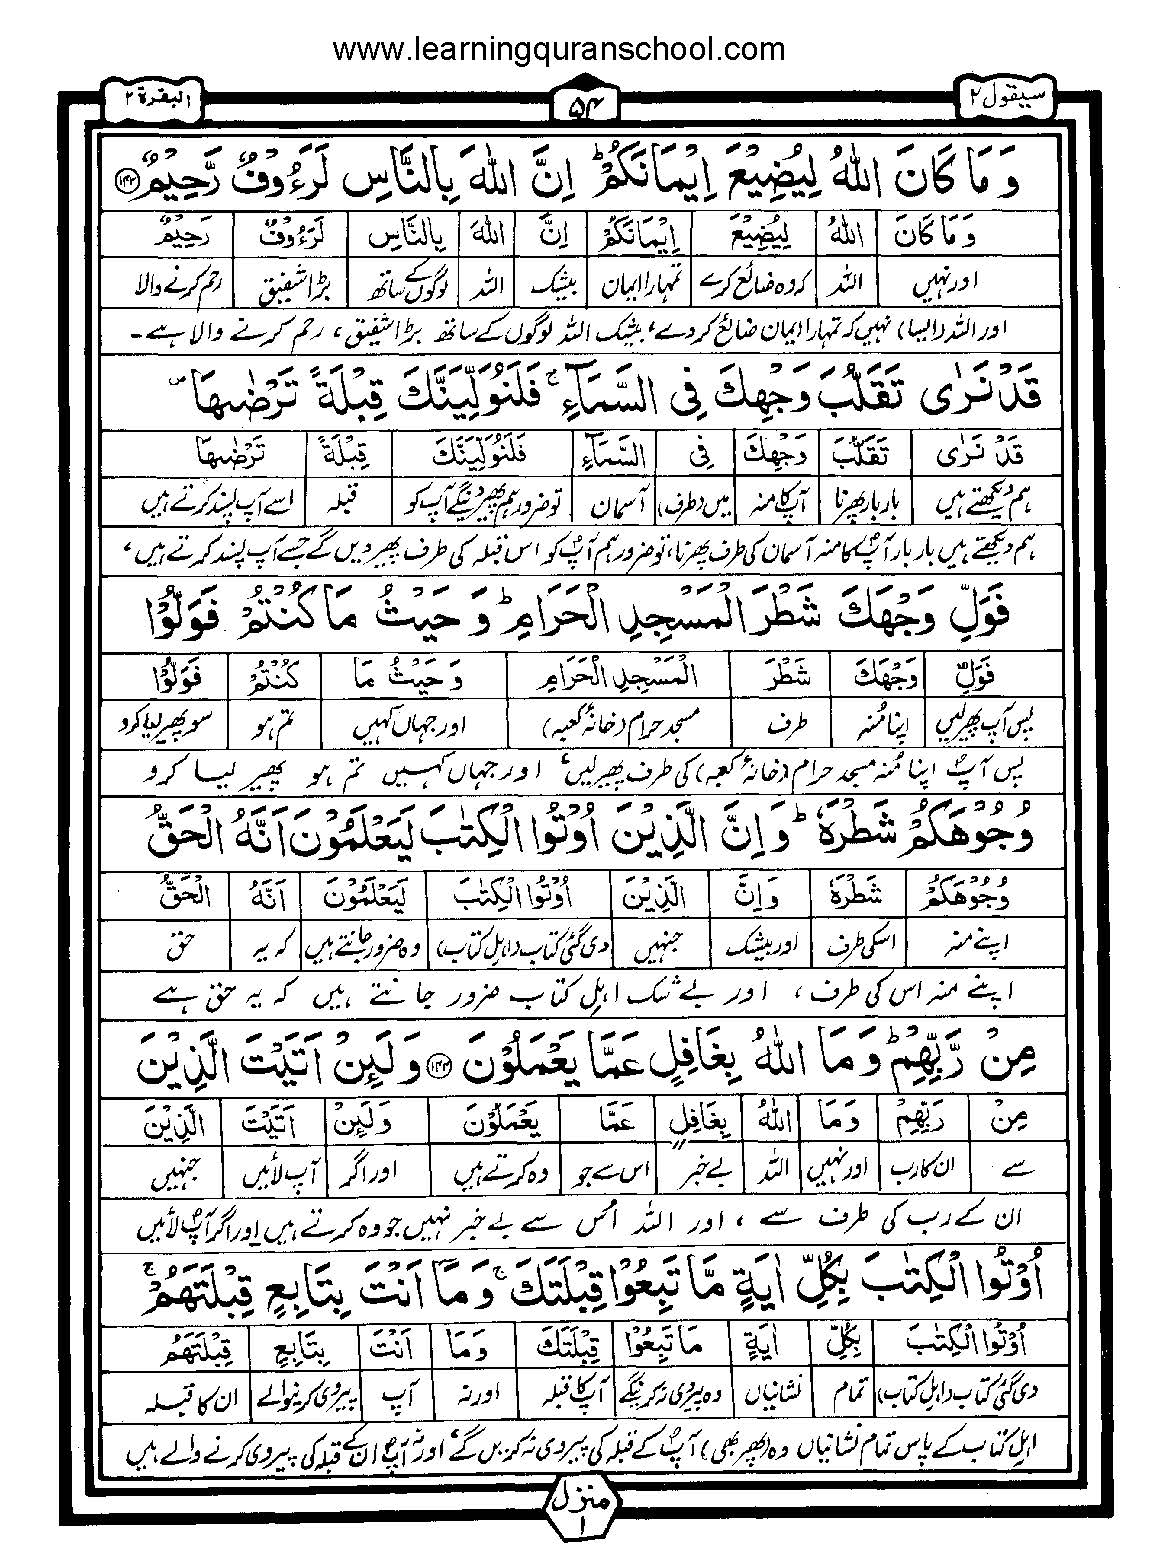 www.learningquranschool.com
سيقول ٢
۵۴
البقرة ٢
وَمَا كَانَ اللّٰهُ لِيُضِيْعَ اِيْمَانَكُمْ ؕ اِنَّ اللّٰهَ بِالنَّاسِ لَرَءُوْفٌ رَّحِيْمٌ ﴿۱۴۳﴾
وَمَا كَانَ اللّٰهُ لِيُضِيْعَ اِيْمَانَكُمْ اِنَّ اللّٰهَ بِالنَّاسِ لَرَءُوْفٌ رَحِيْمٌ
اور نہیں اللہ کہ وہ ضائع کرے تمہارا ایمان بیشک اللہ لوگوں کے ساتھ بڑا شفیق رحم کرنے والا
اور اللہ (ایسا) نہیں کہ تمہارا ایمان ضائع کر دے، بیشک اللہ لوگوں کے ساتھ بڑا شفیق، رحم کرنے والا ہے۔
قَدْ نَرٰى تَقَلُّبَ وَجْهِكَ فِى السَّمَآءِ ۚ فَلَنُوَلِّيَنَّكَ قِبْلَةً تَرْضٰىهَا ۪
قَدْ نَرٰى تَقَلُّبَ وَجْهِكَ فِى السَّمَآءِ فَلَنُوَلِّيَنَّكَ قِبْلَةً تَرْضٰىهَا
ہم دیکھتے ہیں بار بار پھرنا آپ کا منہ میں (طرف) آسمان تو ضرور ہم پھیر دینگے آپ کو قبلہ اسے آپ پسند کرتے ہیں
ہم دیکھتے ہیں بار بار آپؐ کا منہ آسمان کی طرف پھرنا، تو ضرور ہم آپؐ کو اس قبلہ کی طرف پھیر دیں گے جسے آپ پسند کرتے ہیں،
فَوَلِّ وَجْهَكَ شَطْرَ الْمَسْجِدِ الْحَرَامِ ؕ وَحَيْثُ مَا كُنْتُمْ فَوَلُّوْا
فَوَلِّ وَجْهَكَ شَطْرَ الْمَسْجِدِ الْحَرَامِ وَحَيْثُ مَا كُنْتُمْ فَوَلُّوْا
پس آپ پھیر لیں اپنا منہ طرف مسجد حرام (خانۂ کعبہ) اور جہاں کہیں تم ہو سو پھیر لیا کرو
پس آپؐ اپنا منہ مسجد حرام (خانۂ کعبہ) کی طرف پھیر لیں، اور جہاں کہیں تم ہو پھیر لیا کرو
وُجُوْهَكُمْ شَطْرَهٗ ؕ وَاِنَّ الَّذِيْنَ اُوْتُوا الْكِتٰبَ لَيَعْلَمُوْنَ اَنَّهُ الْحَقُّ
وُجُوْهَكُمْ شَطْرَهٗ وَاِنَّ الَّذِيْنَ اُوْتُوا الْكِتٰبَ لَيَعْلَمُوْنَ اَنَّهُ الْحَقُّ
اپنے منہ اسکی طرف اور بیشک جنہیں دی گئی کتاب (اہل کتاب) وہ ضرور جانتے ہیں کہ یہ حق
اپنے منہ اس کی طرف، اور بے شک اہل کتاب ضرور جانتے ہیں کہ یہ حق ہے
مِنْ رَّبِّهِمْ ؕ وَمَا اللّٰهُ بِغَافِلٍ عَمَّا يَعْمَلُوْنَ ﴿۱۴۴﴾ وَلَئِنْ اَتَيْتَ الَّذِيْنَ
مِنْ رَبِّهِمْ وَمَا اللّٰهُ بِغَافِلٍ عَمَّا يَعْمَلُوْنَ وَلَئِنْ اَتَيْتَ الَّذِيْنَ
سے ان کا رب اور نہیں اللہ بے خبر اس سے جو وہ کرتے ہیں اور اگر آپ لائیں جنہیں
ان کے رب کی طرف سے، اور اللہ اس سے بے خبر نہیں جو وہ کرتے ہیں اور اگر آپؐ لائیں
اُوْتُوا الْكِتٰبَ بِكُلِّ اٰيَةٍ مَّا تَبِعُوْا قِبْلَتَكَ ۚ وَمَا اَنْتَ بِتَابِعٍ قِبْلَتَهُمْ ۚ
اُوْتُوا الْكِتٰبَ بِكُلِّ اٰيَةٍ مَا تَبِعُوْا قِبْلَتَكَ وَمَا اَنْتَ بِتَابِعٍ قِبْلَتَهُمْ
دی گئی کتاب (اہل کتاب) تمام نشانیاں وہ پیروی نہ کرینگے آپ کا قبلہ اور نہ آپ پیروی کرنیوالے ان کا قبلہ
اہل کتاب کے پاس تمام نشانیاں وہ (پھر بھی) آپؐ کے قبلہ کی پیروی نہ کریں گے، اور نہ آپؐ ان کے قبلہ کی پیروی کرنے والے ہیں
منزل
۱